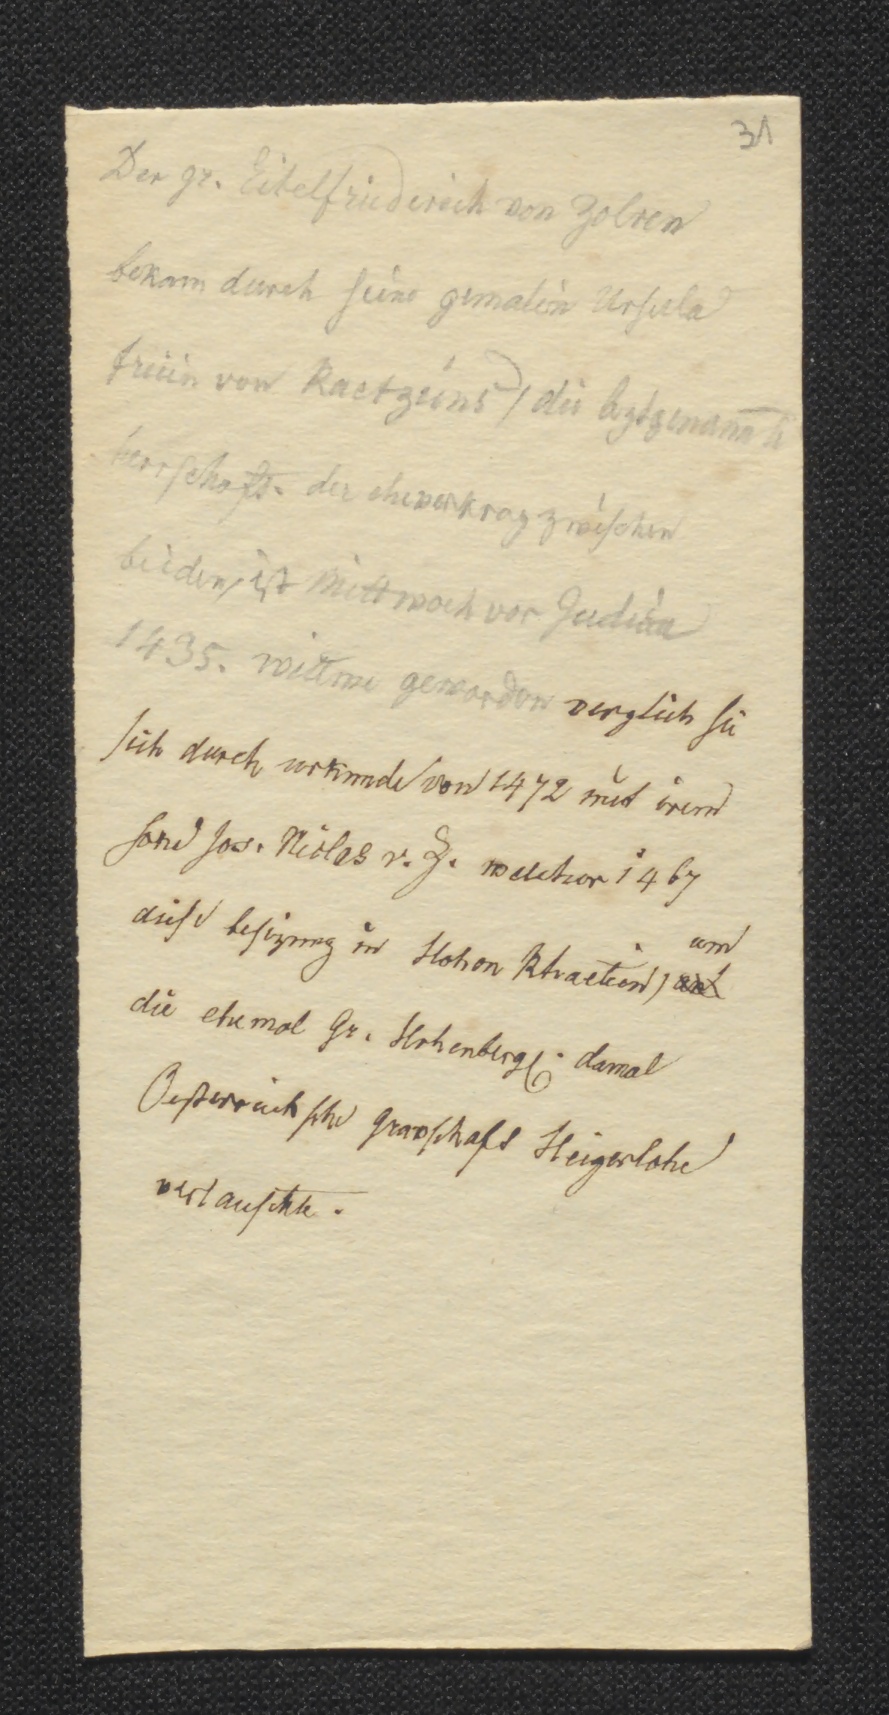 31
Der gr. Eitelfriederich von Zolren
bekam durch seine gemalin Ursula
freiin von Raetzüns / die leztgenannte
herrschaft. der ehevertrag zwischen
beiden, ist Mittwoch vor Judica
1435. wittwe geworden verglich sie
sich durch urkunde von 1472 mit irem
sone Jos. Niclas v. Z. welcher 1467
diese besizung in Hohen Rhaetien, um
die ehemal Gr. Hohenberg. damal
Oesterreichsche gravschaft Heigerlohe
vertauschte.